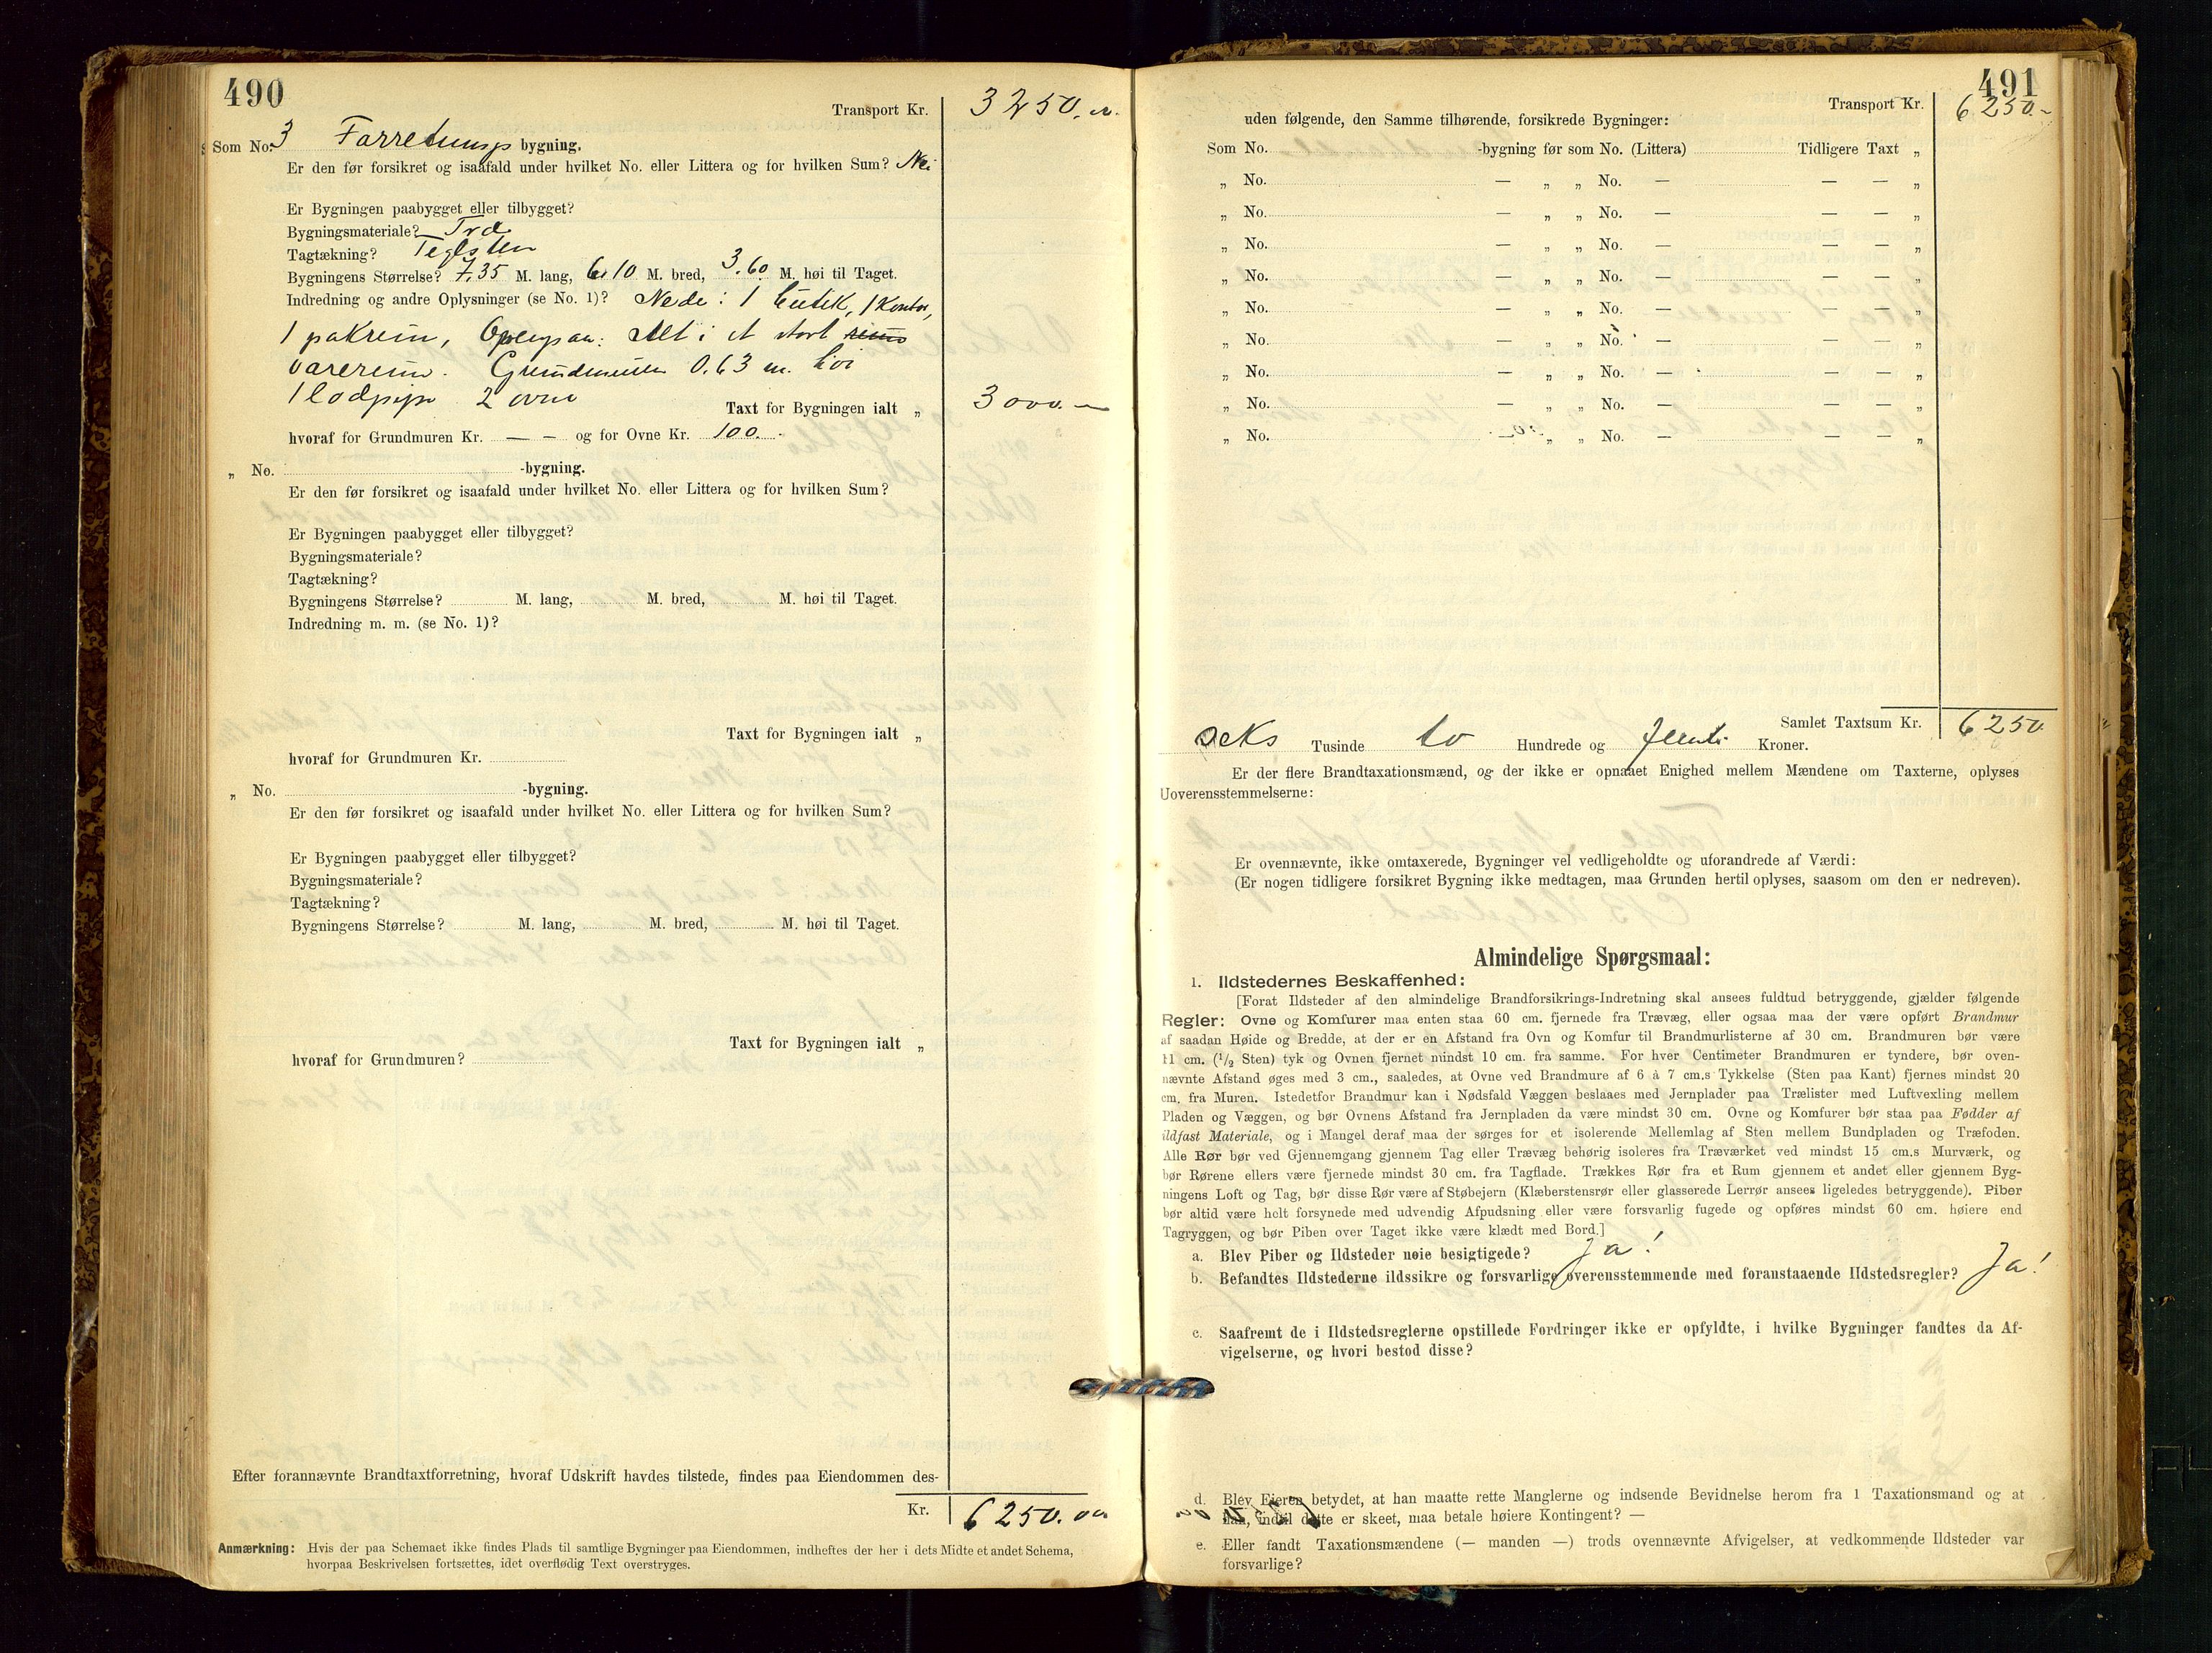 490
Transport Kr. 3250.
Som No. 3 Forretnings bygning.
Er den før forsikret og isaafald under hvilket No. eller Littera og for hvilken Sum? Nei
Er Bygningen paabygget eller tilbygget?
Bygningsmateriale? Træ
Tagtækning? Teglsten
Bygningens Størrelse? 7.35 M. lang, 6.10 M. bred, 3.60 M. høi til Taget.
Indredning og andre Oplysninger (se No. 1)? Nede: 1 butik, 1 Kontor,
1 pakrum, Ovenpaa: Alt i et stort
varerum. Grundmuren 0.63 m. høi
1 lodpipe 2 ovne
Taxt for Bygningen ialt „ 3000.—
hvoraf for Grundmuren Kr. — — og for Ovne Kr. 100.-
„ No. -bygning.
Er den før forsikret og isaafald under hvilket No. eller Littera og for hvilken Sum?
Er Bygningen paabygget eller tilbygget?
Bygningsmateriale?
Tagtækning?
Bygningens Størrelse? M. lang, M. bred, M. høi til Taget.
Indredning m. m. (se No. 1)?
Taxt for Bygningen ialt „
hvoraf for Grundmuren Kr.
„ No. -bygning.
Er den før forsikret og isaafald under hvilket No. eller Littera og for hvilken Sum?
Er Bygningen paabygget eller tilbygget?
Bygningsmateriale?
Tagtækning?
Bygningens Størrelse? M. lang, M. bred, M. høi til Taget.
Taxt for Bygningen ialt „
hvoraf for Grundmuren?
Efter forannævnte Brandtaxtforretning, hvoraf Udskrift havdes tilstede, findes paa Eiendommen des-
Kr. 6250.00
Anmærkning: Hvis der paa Schemaet ikke findes Plads til samtlige Bygninger paa Eiendommen, indheftes der her i dets Midte et andet Schema,
hvorpaa Beskrivelsen fortsættes, idet overflødig Text overstryges.
491
Transport Kr. 6250.-
uden følgende, den Samme tilhørende, forsikrede Bygninger:
Som No. -bygning før som No. (Littera) Tidligere Taxt „
„ No. — „ „ No. — — — „
„ No. — „ „ No. — — — „
„ No. — „ „ No. — — — „
„ No. — „ „ No. — — — „
„ No. — „ „ No. — — — „
„ No. — „ „ No. — — — „
„ No. — „ „ No. — — — „
„ No. — „ „ No. — — — „
„ No. — „ „ No. — — — „
Samlet Taxtsum Kr. 6250.
seks Tusinde to Hundrede og femti Kroner.
Er der flere Brandtaxationsmænd, og der ikke er opnaaet Enighed mellem Mændene om Taxterne, oplyses
Uoverensstemmelserne:
Er ovennævnte, ikke omtaxerede, Bygninger vel vedligeholdte og uforandrede af Værdi:
(Er nogen tidligere forsikret Bygning ikke medtagen, maa Grunden hertil oplyses, saasom om den er nedreven).
Almindelige Spørgsmaal:
1. Ildstedernes Beskaffenhed:
[Forat Ildsteder af den almindelige Brandforsikrings-Indretning skal ansees fuldtud betryggende, gjælder følgende
Regler: Ovne og Komfurer maa enten staa 60 cm. fjernede fra Trævæg, eller ogsaa maa der være opført Brandmur
af saadan Høide og Bredde, at der er en Afstand fra Ovn og Komfur til Brandmurlisterne af 30 cm. Brandmuren bør være
11 cm. (1/2 Sten) tyk og Ovnen fjernet mindst 10 cm. fra samme. For hver Centimeter Brandmuren er tyndere, bør oven-
nævnte Afstand øges med 3 cm., saaledes, at Ovne ved Brandmure af 6 à 7 cm.s Tykkelse (Sten paa Kant) fjernes mindst 20
cm. fra Muren. Istedetfor Brandmur kan i Nødsfald Væggen beslaaes med Jernplader paa Trælister med Luftvexling mellem
Pladen og Væggen, og bør Ovnens Afstand fra Jernpladen da være mindst 30 cm. Ovne og Komfurer bør staa paa Fødder af
ildfast Materiale, og i Mangel deraf maa der sørges for et isolerende Mellemlag af Sten mellem Bundpladen og Træfoden.
Alle Rør bør ved Gjennemgang gjennem Tag eller Trævæg behørig isoleres fra Træværket ved mindst 15 cm.s Murværk, og
bør Rørene ellers være fjernede mindst 30 cm. fra Tagflade. Trækkes Rør fra et Rum gjennem et andet eller gjennem Byg-
ningens Loft og Tag, bør disse Rør være af Støbejern (Klæberstensrør eller glasserede Lerrør ansees ligeledes betryggende). Piber
bør altid være helt forsynede med udvendig Afpudsning eller være forsvarlig fugede og opføres mindst 60 cm. høiere end
Tagryggen, og bør Piben over Taget ikke være klædt med Bord.]
a. Blev Piber og Ildsteder nøie besigtigede? Ja!
b. Befandtes Ildstederne ildssikre og forsvarlige overensstemmende med foranstaaende Ildstedsregler? Ja!
c. Saafremt de i Ildstedsreglerne opstillede Fordringer ikke er opfyldte, i hvilke Bygninger fandtes da Af-
vigelserne, og hvori bestod disse?
d. Blev Eieren betydet, at han maatte rette Manglerne og indsende Bevidnelse herom fra 1 Taxationsmand og at
han, indtil dette er skeet, maa betale høiere Kontingent? —
e. Eller fandt Taxationsmændene (— manden —) trods ovennævnte Afvigelser, at vedkommende Ildsteder var
forsvarlige?